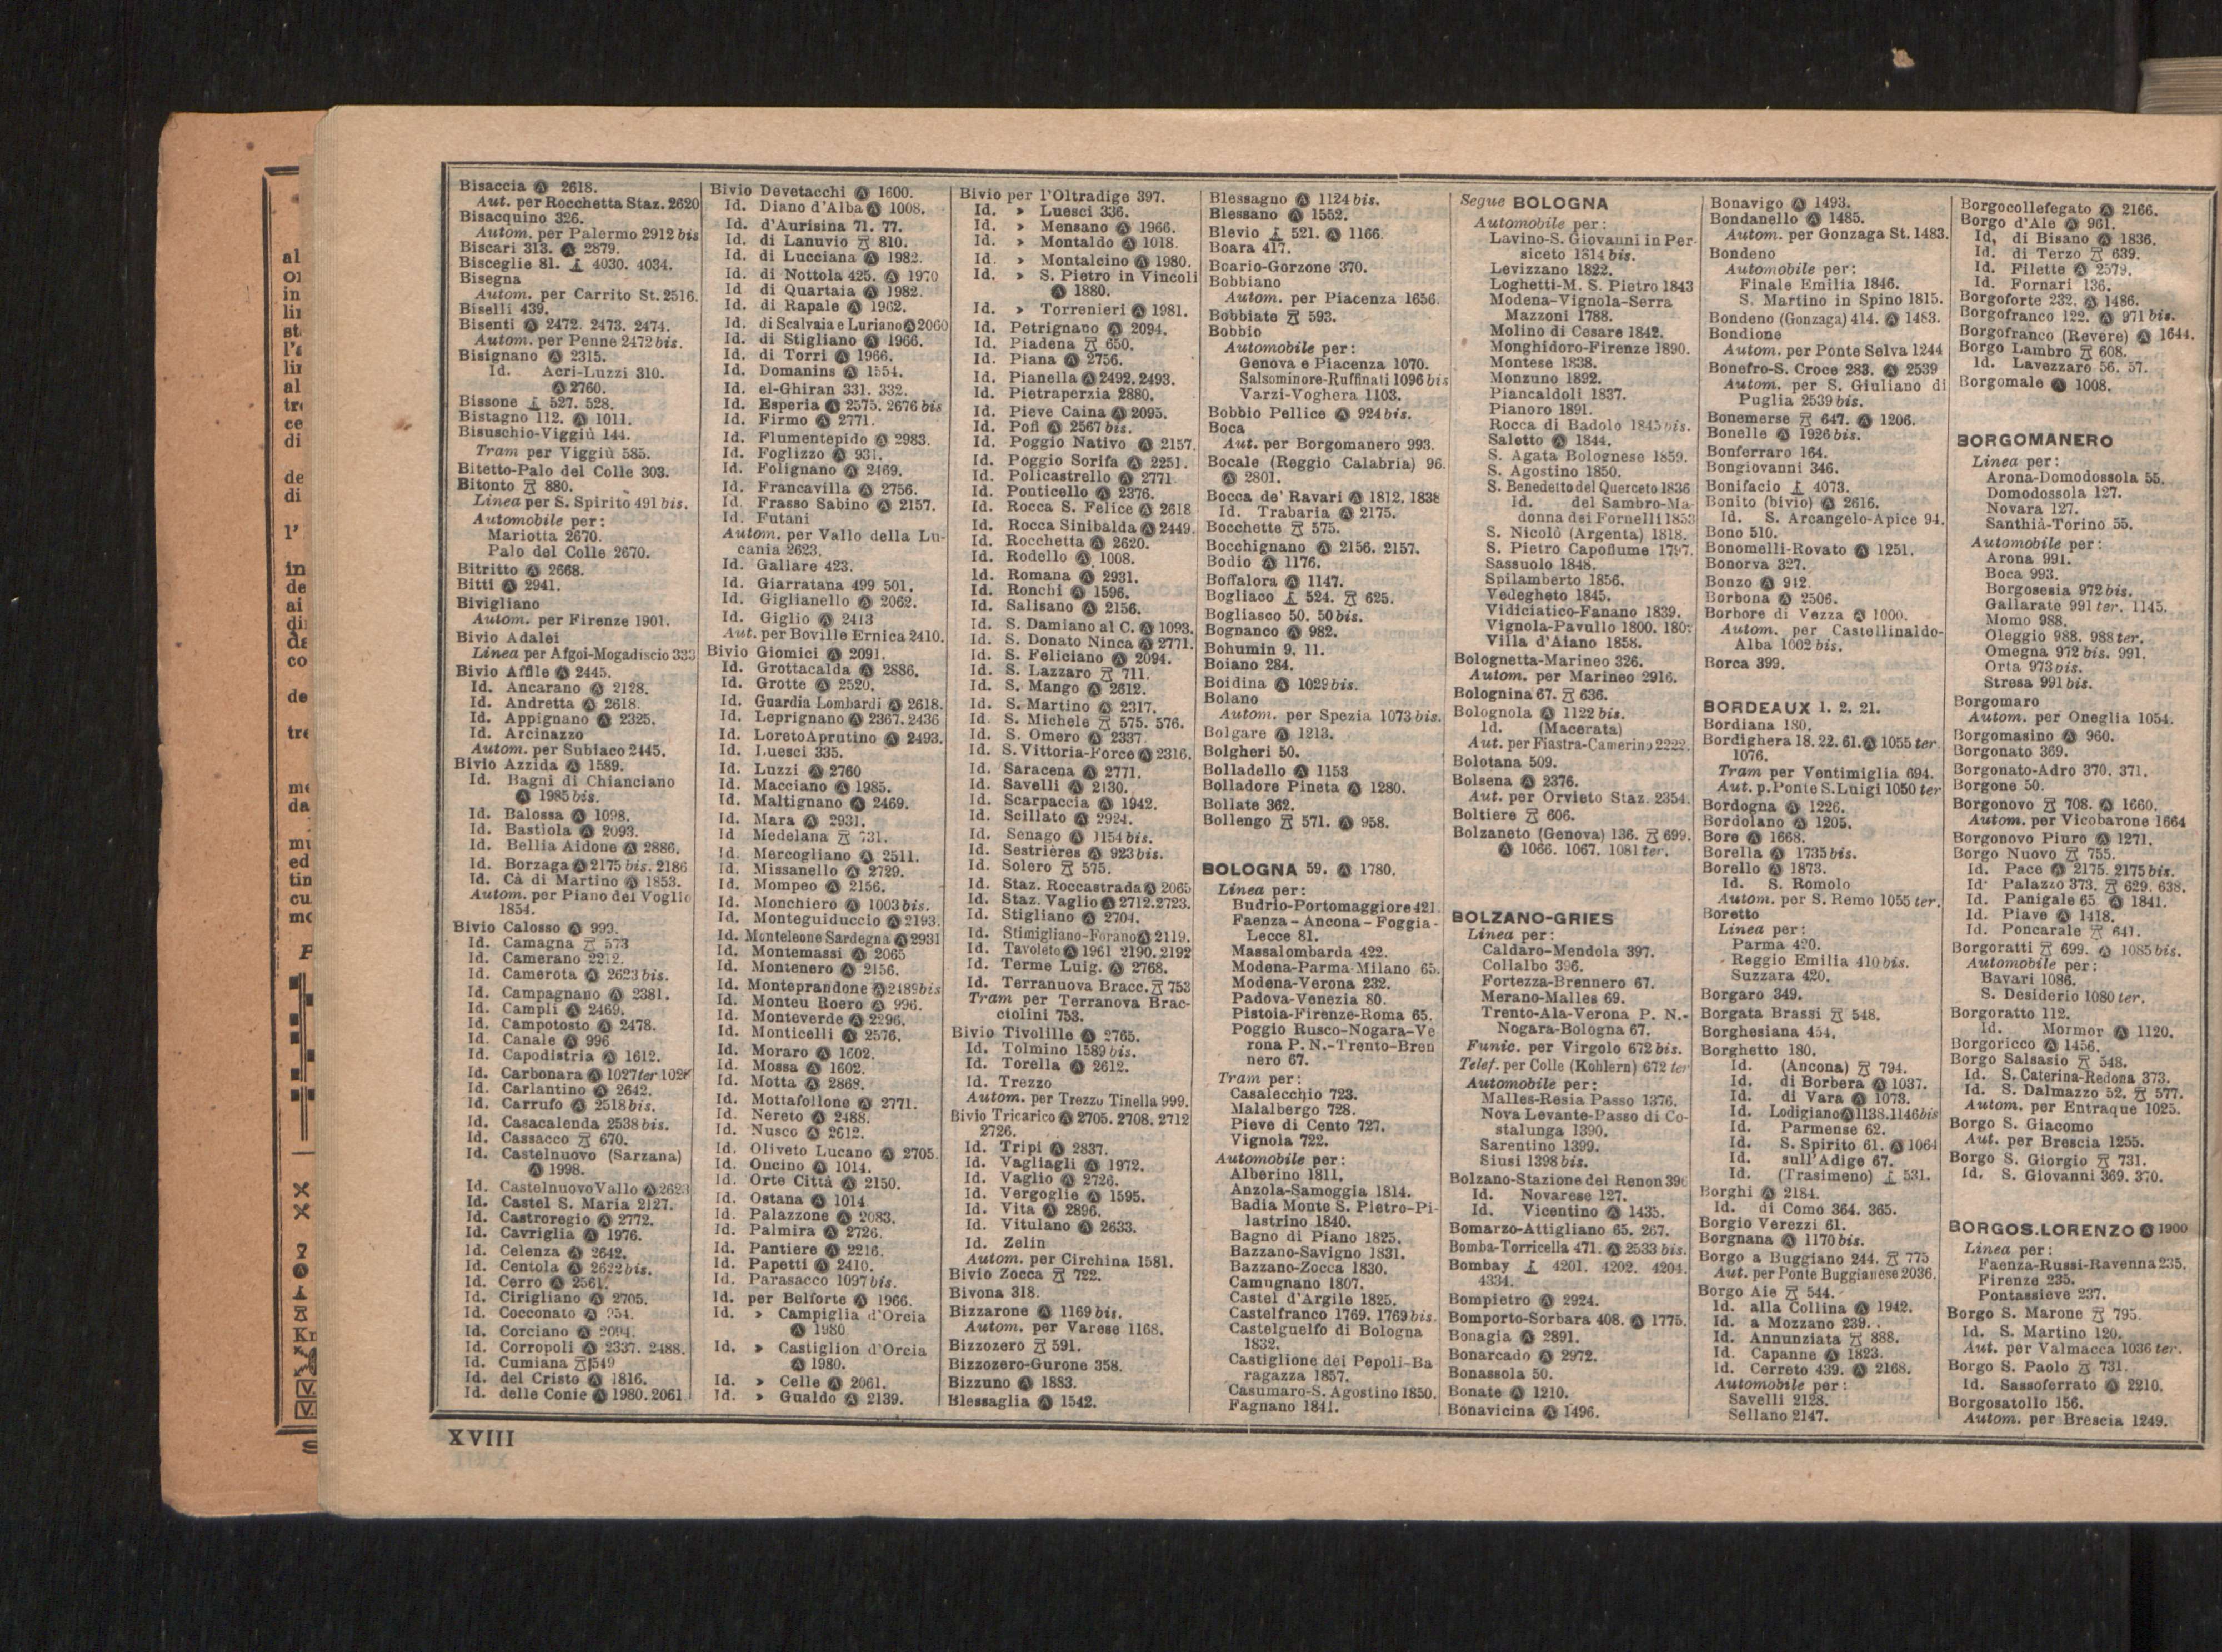 Bisaccia Ⓐ 2618.
Aut. per Rocchetta Staz. 2620
Bisacquino 326.
Autom. per Palermo 2912 bis
Biscari 313. Ⓐ 2879.
Bisceglie 81. 4030. 4034.
Bisegna
Autom. per Carrito St. 2516.
Biselli 439.
Bisenti Ⓐ 2472. 2473. 2474.
Autom. per Penne 2472 bis.
Bisignano Ⓐ 2315.
Id. Acri-Luzzi 310.
Ⓐ 2760.
Bissone 527. 528.
Bistagno 112. Ⓐ 1011.
Bisuschio-Viggiù 144.
Tram per Viggiù 585.
Bitetto-Palo del Colle 303.
Bitonto 880.
Linea per S. Spirito 491 bis.
Automobile per:
Mariotta 2670.
Palo del Colle 2670.
Bitritto Ⓐ 2668.
Bitti Ⓐ 2941.
Bivigliano
Autom. per Firenze 1901.
Bivio Adalei
Linea per Afgoi-Mogadiscio 333
Bivio Affile Ⓐ 2445.
Id. Ancarano Ⓐ 2128.
Id. Andretta Ⓐ 2618.
Id. Appignano Ⓐ 2325.
Id. Arcinazzo
Autom. per Subiaco 2445.
Bivio Azzida Ⓐ 1589.
Id. Bagni di Chianciano
Ⓐ 1985 bis.
Id. Balossa Ⓐ 1098.
Id. Bastiola Ⓐ 2093.
Id. Bellia Aidone Ⓐ 2886.
Id. Borzaga Ⓐ 2175 bis. 2186
Id. Cà di Martino Ⓐ 1853.
Autom. per Piano del Voglio
1854.
Bivio Calosso Ⓐ 999.
Id. Camagna 573
Id. Camerano 2212.
Id. Camerota Ⓐ 2623 bis.
Id. Campagnano Ⓐ 2381.
Id. Campli Ⓐ 2469.
Id. Campotosto Ⓐ 2478.
Id. Canale Ⓐ 996
Id. Capodistria Ⓐ 1612.
Id. Carbonara Ⓐ 1027 ter
Id. Carlantino Ⓐ 2642.
Id. Carrufo Ⓐ 2518 bis.
Id. Casacalenda 2538 bis.
Id. Cassacco 670.
Id. Castelnuovo (Sarzana)
Ⓐ 1998.
Id. Castelnuovo Vallo Ⓐ 2623
Id. Castel S. Maria 2127.
Id. Castroregio Ⓐ 2772.
Id. Cavriglia Ⓐ 1976.
Id. Celenza Ⓐ 2642.
Id. Centola Ⓐ 2622 bis.
Id. Cerro Ⓐ 2561.
Id. Cirigliano Ⓐ 2705.
Id. Cocconato Ⓐ 954.
Id. Corciano Ⓐ 2094.
Id. Corropoli Ⓐ 2337. 2488.
Id. Cumiana 549
Id. del Cristo Ⓐ 1816.
Id. delle Conie Ⓐ 1980. 2061
Bivio Devetacchi Ⓐ 1600.
Id. Diano d'Alba Ⓐ 1008.
Id. d'Aurisina 71. 77.
Id. di Lanuvio 810.
Id. di Lucciana Ⓐ 1982.
Id. di Nottola 425. Ⓐ 1970
Id di Quartaia Ⓐ 1982.
Id. di Rapale Ⓐ 1962.
Id. di Scalvaia e Luriano Ⓐ 2060
Id. di Stigliano Ⓐ 1966.
Id. di Torri Ⓐ 1966.
Id. Domanins Ⓐ 1554.
Id. el-Ghiran 331. 332.
Id. Esperia Ⓐ 2575. 2676 bis
Id. Firmo Ⓐ 2771.
Id. Flumentepido Ⓐ 2983.
Id. Foglizzo Ⓐ 931.
Id. Folignano Ⓐ 2469.
Id. Francavilla Ⓐ 2756.
Id. Frasso Sabino Ⓐ 2157.
Id. Futani
Autom. per Vallo della Lu-
cania 2623.
Id. Galiare 423.
Id. Giarratana 499 501.
Id. Giglianello Ⓐ 2062.
Id. Giglio Ⓐ 2413
Aut. per Boville Ernica 2410.
Bivio Giomici Ⓐ 2091.
Id. Grottacalda Ⓐ 2886.
Id. Grotte Ⓐ 2520.
Id. Guardia Lombardi Ⓐ 2618.
Id. Leprignano Ⓐ 2367. 2436
Id. Loreto Aprutino Ⓐ 2493.
Id. Luesci 335.
Id. Luzzi Ⓐ 2760
Id. Macciano Ⓐ 1985.
Id. Maltignano Ⓐ 2469.
Id. Mara Ⓐ 2931.
Id Medelana 731.
Id. Mercogliano Ⓐ 2511.
Id. Missanello Ⓐ 2729.
Id. Mompeo Ⓐ 2156.
Id. Monchiero Ⓐ 1003 bis.
Id. Monteguiduccio Ⓐ 2193.
Id. Monteleone Sardegna Ⓐ 2931
Id. Montemassi Ⓐ 2065
Id. Montenero Ⓐ 2156.
Id. Monteprandone Ⓐ 2489 bis
Id. Monteu Roero Ⓐ 996.
Id. Monteverde Ⓐ 2296.
Id. Monticelli Ⓐ 2576.
Id. Moraro Ⓐ 1602.
Id. Mossa Ⓐ 1602.
Id. Motta Ⓐ 2868.
Id. Mottafollone Ⓐ 2771.
Id. Nereto Ⓐ 2488.
Id. Nusco Ⓐ 2612.
Id. Oliveto Lucano Ⓐ 2705.
Id. Oncino Ⓐ 1014.
Id. Orte Città Ⓐ 2150.
Id. Ostana Ⓐ 1014
Id. Palazzone Ⓐ 2083.
Id. Palmira Ⓐ 2726.
Id. Pantiere Ⓐ 2216.
Id. Papetti Ⓐ 2410.
Id. Parasacco 1097 bis.
Id. per Belforte Ⓐ 1966.
Id. » Campiglia d'Orcia
Ⓐ 1980
Id. » Castiglion d'Orcia
Ⓐ 1980.
Id. » Celle Ⓐ 2061.
Id. » Gualdo Ⓐ 2139.
Bivio per l'Oltradige 397.
Id. » Luesci 336.
Id. » Mensano Ⓐ 1966.
Id. » Montaldo Ⓐ 1018.
Id. » Montalcino Ⓐ 1980.
Id. » S. Pietro in Vincoli
Ⓐ 1880.
Id. » Torrenieri Ⓐ 1981.
Id. Petrignano Ⓐ 2094.
Id. Piadena 650.
Id. Piana Ⓐ 2756.
Id. Pianella Ⓐ 2492. 2493.
Id. Pietraperzia 2880.
Id. Pieve Caina Ⓐ 2095.
Id. Pofi Ⓐ 2567 bis.
Id. Poggio Nativo Ⓐ 2157.
Id. Poggio Sorifa Ⓐ 2251.
Id. Policastrello Ⓐ 2771
Id. Ponticello Ⓐ 2376.
Id. Rocca S. Felice Ⓐ 2618
Id. Rocca Sinibalda Ⓐ 2449.
Id. Rocchetta Ⓐ 2620.
Id. Rodello Ⓐ 1008.
Id. Romana Ⓐ 2931.
Id. Ronchi Ⓐ 1596.
Id. Salisano Ⓐ 2156.
Id. S. Damiano al C. Ⓐ 1093.
Id. S. Donato Ninca Ⓐ 2771.
Id. S. Feliciano Ⓐ 2094.
Id. S. Lazzaro 711.
Id. S. Mango Ⓐ 2612.
Id. S. Martino Ⓐ 2317.
Id. S. Michele 575. 576.
Id. S. Omero Ⓐ 2337
Id. S. Vittoria-Force Ⓐ 2316.
Id. Saracena Ⓐ 2771.
Id. Savelli Ⓐ 2130.
Id. Scarpaccia Ⓐ 1942.
Id. Scillato Ⓐ 2924.
Id. Senago Ⓐ 1154 bis.
Id. Sestrières Ⓐ 923 bis.
Id. Solero 575.
Id. Staz. Roccastrada Ⓐ 2065
Id. Staz. Vaglio Ⓐ 2712. 2723.
Id. Stigliano Ⓐ 2704.
Id. Stimigliano-Forano Ⓐ 2119.
Id. Tavoleto Ⓐ 1961 2190. 2192
Id. Terme Luig. Ⓐ 2768.
Id. Terranuova Bracc. 753
Tram per Terranova Brac-
ciolini 753.
Bivio Tivolille Ⓐ 2765.
Id. Tolmino 1589 bis.
Id. Torella Ⓐ 2612.
Id. Trezzo
Autom. per Trezzo Tinella 999.
Bivio Tricarico Ⓐ 2705. 2708. 2712
2726.
Id. Tripi Ⓐ 2837.
Id. Vagliagli Ⓐ 1972.
Id. Vaglio Ⓐ 2726.
Id. Vergoglie Ⓐ 1595.
Id. Vita Ⓐ 2896.
Id. Vitulano Ⓐ 2633.
Id. Zelin
Autom. per Circhina 1581.
Bivio Zocca 722.
Bivona 318.
Bizzarone Ⓐ 1169 bis.
Autom. per Varese 1168.
Bizzozero 591.
Bizzozero-Gurone 358.
Bizzuno Ⓐ 1883.
Blessaglia Ⓐ 1542.
Blessagno Ⓐ 1124 bis.
Blessano Ⓐ 1552.
Blevio 521. Ⓐ 1166.
Boara 417.
Boario-Gorzone 370.
Bobbiano
Autom. per Piacenza 1656.
Bobbiate 593.
Bobbio
Automobile per:
Genova e Piacenza 1070.
Salsominore-Ruffinati 1096 bis
Varzi-Voghera 1103.
Bobbio Pellice Ⓐ 924 bis.
Boca
Aut. per Borgomanero 993.
Bocale (Reggio Calabria) 96.
Ⓐ 2801.
Bocca de' Ravari Ⓐ 1812. 1838
Id. Trabaria Ⓐ 2175.
Bocchette 575.
Bocchignano Ⓐ 2156. 2157.
Bodio Ⓐ 1176.
Boffalora Ⓐ 1147.
Bogliaco 524. 625.
Bogliasco 50. 50 bis.
Bognanco Ⓐ 982.
Bohumin 9. 11.
Boiano 284.
Boidina Ⓐ 1029 bis.
Bolano
Autom. per Spezia 1073 bis.
Bolgare Ⓐ 1213.
Bolgheri 50.
Bolladello Ⓐ 1153
Bolladore Pineta Ⓐ 1280.
Bollate 362.
Bollengo 571. Ⓐ 958.
BOLOGNA 59. Ⓐ 1780.
Linea per:
Budrio-Portomaggiore 421.
Faenza-Ancona-Foggia-
Lecce 81.
Massalombarda 422.
Modena-Parma-Milano 65.
Modena-Verona 232.
Padova-Venezia 80.
Pistoia-Firenze-Roma 65.
Poggio Rusco-Nogara-Ve
rona P. N.-Trento-Bren
nero 67.
Tram per:
Casalecchio 723.
Malalbergo 728.
Pieve di Cento 727.
Vignola 722.
Automobile per:
Alberino 1811.
Anzola-Samoggia 1814.
Badia Monte S. Pietro-Pi-
lastrino 1840.
Bagno di Piano 1825.
Bazzano-Savigno 1831.
Bazzano-Zocca 1830.
Camugnano 1807.
Castel d'Argile 1825.
Castelfranco 1769. 1769 bis.
Castelguelfo di Bologna
1832.
Castiglione dei Pepoli-Ba
ragazza 1857.
Casumaro-S. Agostino 1850.
Fagnano 1841.
Segue BOLOGNA
Automobile per:
Lavino-S. Giovanni in Per-
siceto 1814 bis.
Levizzano 1822.
Loghetti-M. S. Pietro 1843
Modena-Vignola-Serra
Mazzoni 1788.
Molino di Cesare 1842.
Monghidoro-Firenze 1890.
Montese 1838.
Monzuno 1892.
Piancaldoli 1837.
Pianoro 1891.
Rocca di Badolo 1845 bis.
Saletto Ⓐ 1844.
S. Agata Bolognese 1859.
S. Agostino 1850.
S. Benedetto del Querceto 1836
Id. del Sambro-Ma-
donna dei Fornelli 1853
S. Nicolò (Argenta) 1818.
S. Pietro Capofiume 1797.
Sassuolo 1848.
Spilamberto 1856.
Vedegheto 1845.
Vidiciatico-Fanano 1839.
Vignola-Pavullo 1800.
Villa d'Aiano 1858.
Bolognetta-Marineo 326.
Autom. per Marineo 2916.
Bolognina 67. 636.
Bolognola Ⓐ 1122 bis.
Id. (Macerata)
Aut. per Fiastra-Camerino 2222.
Bolotana 509.
Bolsena Ⓐ 2376.
Aut. per Orvieto Staz. 2354.
Boltiere 606.
Bolzaneto (Genova) 136. 699.
Ⓐ 1066. 1067. 1081 ter.
BOLZANO-GRIES
Linea per:
Caldaro-Mendola 397.
Collalbo 396.
Fortezza-Brennero 67.
Merano-Malles 69.
Trento-Ala-Verona P. N.-
Nogara-Bologna 67.
Funic. per Virgolo 672 bis.
Telef. per Colle (Kohlern) 672 ter
Automobile per:
Malles-Resia Passo 1376.
Nova Levante-Passo di Co-
stalunga 1390.
Sarentino 1399.
Siusi 1398 bis.
Bolzano-Stazione del Renon 396
Id. Novarese 127.
Id. Vicentino Ⓐ 1435.
Bomarzo-Attigliano 65. 267.
Bomba-Torricella 471. Ⓐ 2533 bis.
Bombay 4201. 4202. 4204.
4334.
Bompietro Ⓐ 2924.
Bomporto-Sorbara 408. Ⓐ 1775.
Bonagia Ⓐ 2891.
Bonarcado Ⓐ 2972.
Bonassola 50.
Bonate Ⓐ 1210.
Bonavicina Ⓐ 1496.
Bonavigo Ⓐ 1493.
Bondanello Ⓐ 1485.
Autom. per Gonzaga St. 1483.
Bondeno
Automobile per:
Finale Emilia 1846.
S. Martino in Spino 1815.
Bondeno (Gonzaga) 414. Ⓐ 1483.
Bondione
Autom. per Ponte Selva 1244
Bonefro-S. Croce 283. Ⓐ 2539
Autom. per S. Giuliano di
Puglia 2539 bis.
Bonemerse 647. Ⓐ 1206.
Bonelle Ⓐ 1926 bis.
Bonferraro 164.
Bongiovanni 346.
Bonifacio 4073.
Bonito (bivio) Ⓐ 2616.
Id. S. Arcangelo-Apice 94.
Bono 510.
Bonomelli-Rovato Ⓐ 1251.
Bonorva 327.
Bonzo Ⓐ 912.
Borbona Ⓐ 2506.
Borbore di Vezza Ⓐ 1000.
Autom. per Castellinaldo-
Alba 1002 bis.
Borca 399.
BORDEAUX 1. 2. 21.
Bordiana 180.
Bordighera 18. 22. 61. Ⓐ 1055 ter.
1076.
Tram per Ventimiglia 694.
Aut. p. Ponte S. Luigi 1050 ter
Bordogna Ⓐ 1226.
Bordolano Ⓐ 1205.
Bore Ⓐ 1668.
Borella Ⓐ 1735 bis.
Borello Ⓐ 1873.
Id. S. Romolo
Autom. per S. Remo 1055 ter.
Boretto
Linea per:
Parma 420.
Reggio Emilia 410 bis.
Suzzara 420.
Borgaro 349.
Borgata Brassi 548.
Borghesiana 454.
Borghetto 180.
Id. (Ancona) 794.
Id. di Borbera Ⓐ 1037.
Id. di Vara Ⓐ 1073.
Id. Lodigiano Ⓐ 1138. 1146 bis
Id. Parmense 62.
Id. S. Spirito 61. Ⓐ 1064
Id. sull'Adige 67.
Id. (Trasimeno) 531.
Borghi Ⓐ 2184.
Id. di Como 364. 365.
Borgio Verezzi 61.
Borgnana Ⓐ 1170 bis.
Borgo a Buggiano 244. 775
Aut. per Ponte Buggianese 2036.
Borgo Aie 544.
Id. alla Collina Ⓐ 1942.
Id. a Mozzano 239.
Id. Annunziata 888.
Id. Capanne Ⓐ 1823.
Id. Cerreto 439. Ⓐ 2168.
Automobile per:
Savelli 2128.
Sellano 2147.
Borgocollefegato Ⓐ 2166.
Borgo d'Ale Ⓐ 961.
Id. di Bisano Ⓐ 1836.
Id. di Terzo 639.
Id. Filette Ⓐ 2579.
Id. Fornari 136.
Borgoforte 232. Ⓐ 1486.
Borgofranco 122. Ⓐ 971 bis.
Borgofranco (Revere) Ⓐ 1644.
Borgo Lambro 608.
Id. Lavezzaro 56. 57.
Borgomale Ⓐ 1008.
BORGOMANERO
Linea per:
Arona-Domodossola 55.
Domodossola 127.
Novara 127.
Santhià-Torino 55.
Automobile per:
Arona 991.
Boca 993.
Borgosesia 972 bis.
Gallarate 991 ter. 1145.
Momo 988.
Oleggio 988. 988 ter.
Omegna 972 bis. 991.
Orta 973 bis.
Stresa 991 bis.
Borgomaro
Autom. per Oneglia 1054.
Borgomasino Ⓐ 960.
Borgonato 369.
Borgonato-Adro 370. 371.
Borgone 50.
Borgonovo 708. Ⓐ 1660.
Autom. per Vicobarone 1664
Borgonovo Piuro Ⓐ 1271.
Borgo Nuovo 755.
Id. Pace Ⓐ 2175. 2175 bis.
Id. Palazzo 373. 629. 638.
Id. Panigale 65. Ⓐ 1841.
Id. Piave Ⓐ 1418.
Id. Poncarale 641.
Borgoratti 699. Ⓐ 1085 bis.
Automobile per:
Bavari 1086.
S. Desiderio 1080 ter.
Borgoratto 112.
Id. Mormor Ⓐ 1120.
Borgoricco Ⓐ 1456.
Borgo Salsasio 548.
Id. S. Caterina-Redona 373.
Id. S. Dalmazzo 52. 577.
Autom. per Entraque 1025.
Borgo S. Giacomo
Aut. per Brescia 1255.
Borgo S. Giorgio 731.
Id. S. Giovanni 369. 370.
BORGO S. LORENZO Ⓐ 1900
Linea per:
Faenza-Russi-Ravenna 235.
Firenze 235.
Pontassieve 237.
Borgo S. Marone 795.
Id. S. Martino 120.
Aut. per Valmacca 1036 ter.
Borgo S. Paolo 731.
Id. Sassoferrato Ⓐ 2210.
Borgosatollo 156.
Autom. per Brescia 1249.
XVIII